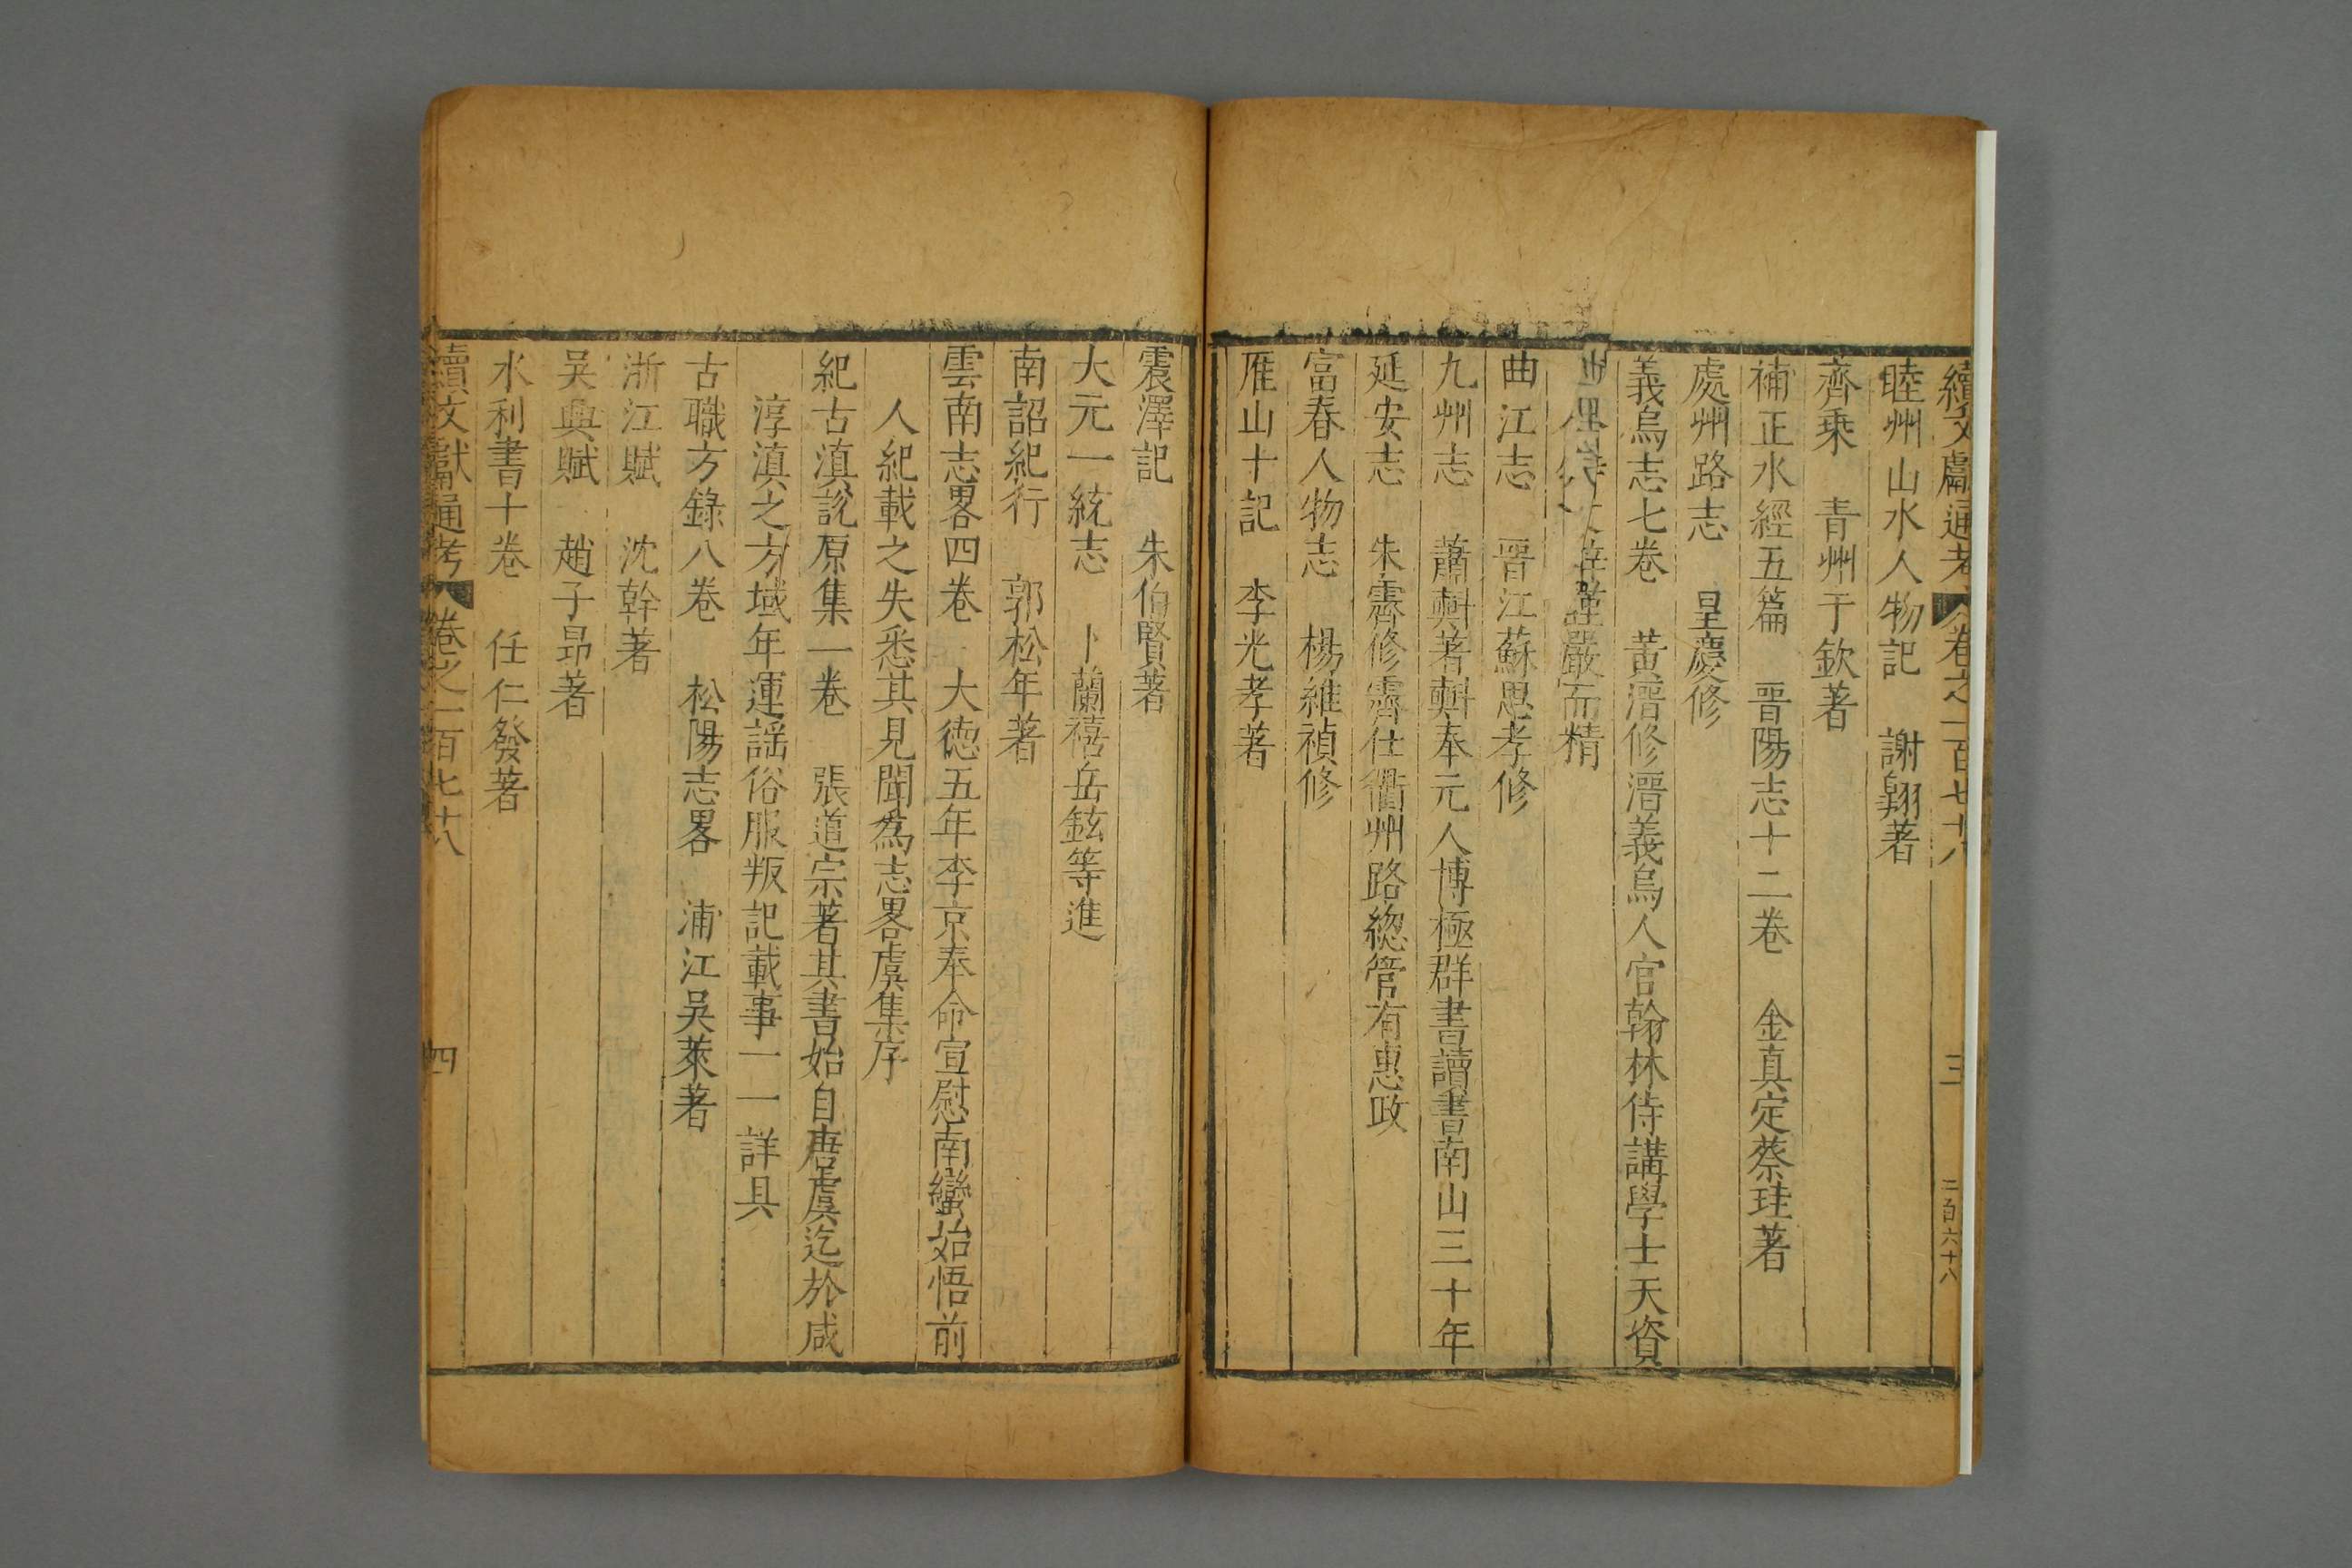 續文獻通考 卷之一百七十八 三 二百六十八
睦州山水人物記 謝翱著
齊乘 青州于欽著
補正水經五篇 晋陽志十二卷 金真定蔡珪著
處州路志 皇慶修
義烏志七卷 黃溍修溍義烏人官翰林侍講學士天資
嚴而精
曲江志 晋江蘇思孝修
九州志 蕭㪺著㪺奉元人博極群書讀書南山三十年
延安志 朱霽修霽仕衢州路緫管有惠政
富春人物志 楊維禎修
雁山十記 李光孝著
震澤記 朱伯賢著
大元一統志 卜蘭禧岳鉉等進
南詔紀行 郭松年著
雲南志畧四卷 大德五年李京奉命宣慰南蠻始悟前
人紀載之失悉其見聞爲志畧虞集序
紀古滇說原集一卷 張道宗著其書始自唐虞迄於咸
淳滇之方域年運謡俗服叛記載事一一詳具
古職方錄八卷 松陽志畧 浦江吳萊著
浙江賦 沈幹著
吳興賦 趙子昂著
水利書十卷 任仁發著
續文獻通考 卷之一百七十八 四